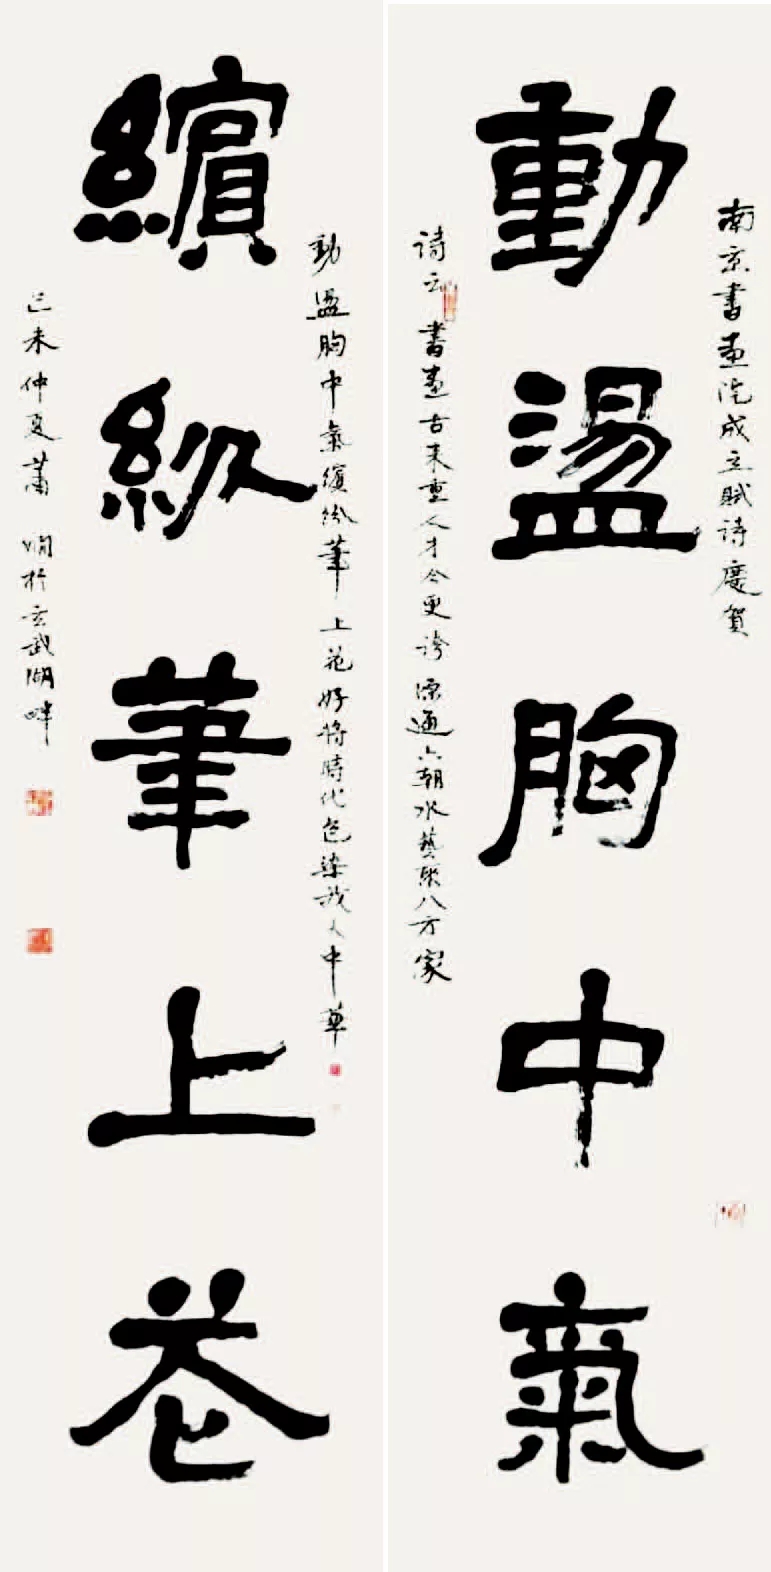 南京書畫院成立賦詩慶賀
動盪胸中氣
詩云 書畫古來重人才今更誇源通六朝水藝聚八方家
動盪胸中氣繽紛筆上花好將時代色染我大中華
繽紛筆上花
己未仲夏蕭嫻於玄武湖畔